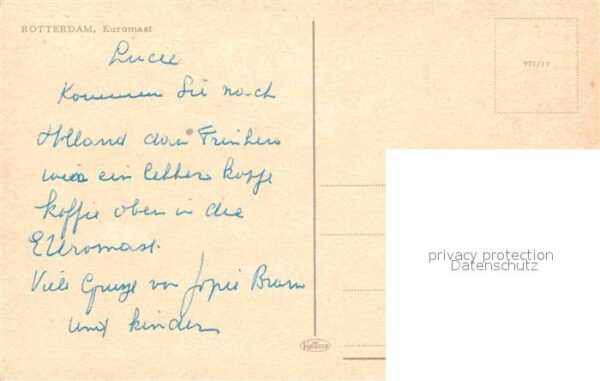 ROTTERDAM, Euromast
971/17
Lucie
Kommen Sie nach
Holland dan Trinken
wir ein lekker kopje
koffie oben in die
EUromast.
Viele Grusse von Jopie Bram
und kinder
privacy protection
Datenschutz